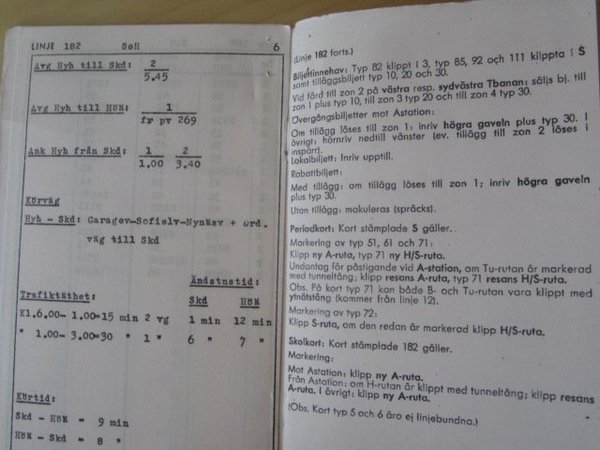 LINJE 182 SoH 6
Avg Hyh till Skd: 2
5.45
Avg Hyh till HöK: 1
fr pv 269
Ank Hyh från Skd: 1 2
1.00 3.40
Körväg
Hyh - Skd: Garagev-Sofielv-Nynäsv + ord.
väg till Skd
Ändstnstid:
Trafiktäthet: Skd HöK
Kl.6.00- 1.00=15 min 2 vg 1 min 12 min
" 1.00- 3.00=30 " 1 " 6 " 7 "
Körtid:
Skd - HöK = 9 min
HöK - Skd = 8 "
(Linje 182 forts.)
Biljettinnehav: Typ 82 klippt i 3, typ 85, 92 och 111 klippta i S
samt tilläggsbiljett typ 10, 20 och 30.
Vid färd till zon 2 på västra resp. sydvästra Tbanan: säljs bj. till
zon 1 plus typ 10, till zon 3 typ 20 och till zon 4 typ 30.
Övergångsbiljetter mot Astation:
Om tillägg löses till zon 1: inriv högra gaveln plus typ 30. I
övrigt: hörnriv nedtill vänster (ev. tillägg till zon 2 löses i
inspärr).
Lokalbiljett: Inriv upptill.
Rabattbiljett:
Med tillägg: om tillägg löses till zon 1; inriv högra gaveln
plus typ 30.
Utan tillägg: makuleras (spräcks).
Periodkort: Kort stämplade S gäller.
Markering av typ 51, 61 och 71:
Klipp ny A-ruta, typ 71 ny H/S-ruta.
Undantag för påstigande vid A-station, om Tu-rutan är markerad
med tunneltång; klipp resans A-ruta, typ 71 resans H/S-ruta.
Obs. På kort typ 71 kan både B- och Tu-rutan vara klippt med
ytnätstång (kommer från linje 12).
Markering av typ 72:
Klipp S-ruta, om den redan är markerad klipp H/S-ruta.
Skolkort: Kort stämplade 182 gäller.
Markering:
Mot Astation: klipp ny A-ruta.
Från Astation: om H-rutan är klippt med tunneltång; klipp resans
A-ruta. I övrigt: klipp ny A-ruta.
(Obs. Kort typ 5 och 6 äro ej linjebundna.)